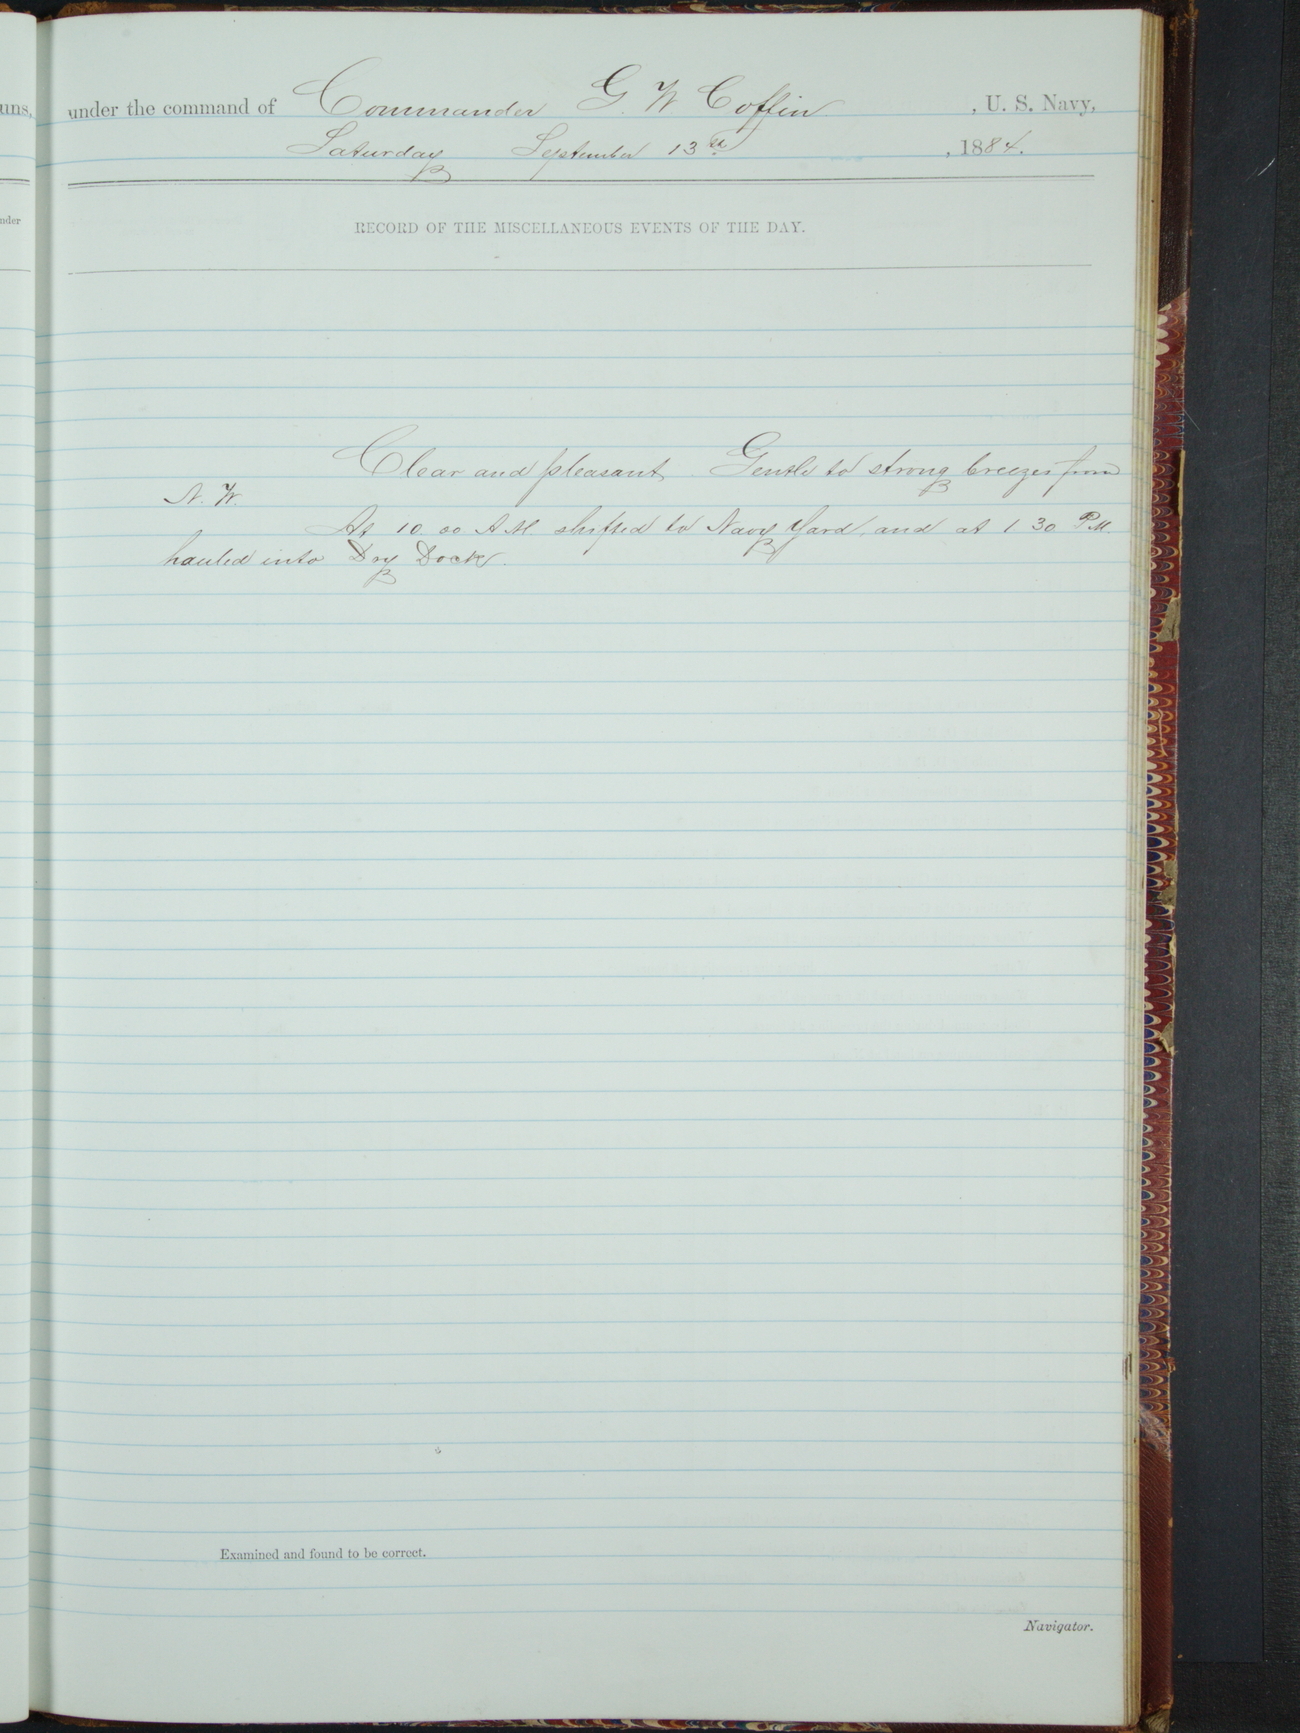 uns,
under the command of Commander G. W. Coffin , U. S. Navy,
Saturday September 13th , 1884.
nder
RECORD OF THE MISCELLANEOUS EVENTS OF THE DAY.
Clear and pleasant. Gentle to strong breezes from
N. W.
At 10.00 A.M. shifted to Navy Yard, and at 1 30 P.M.
hauled into Dry Dock.
Examined and found to be correct.
Navigator.